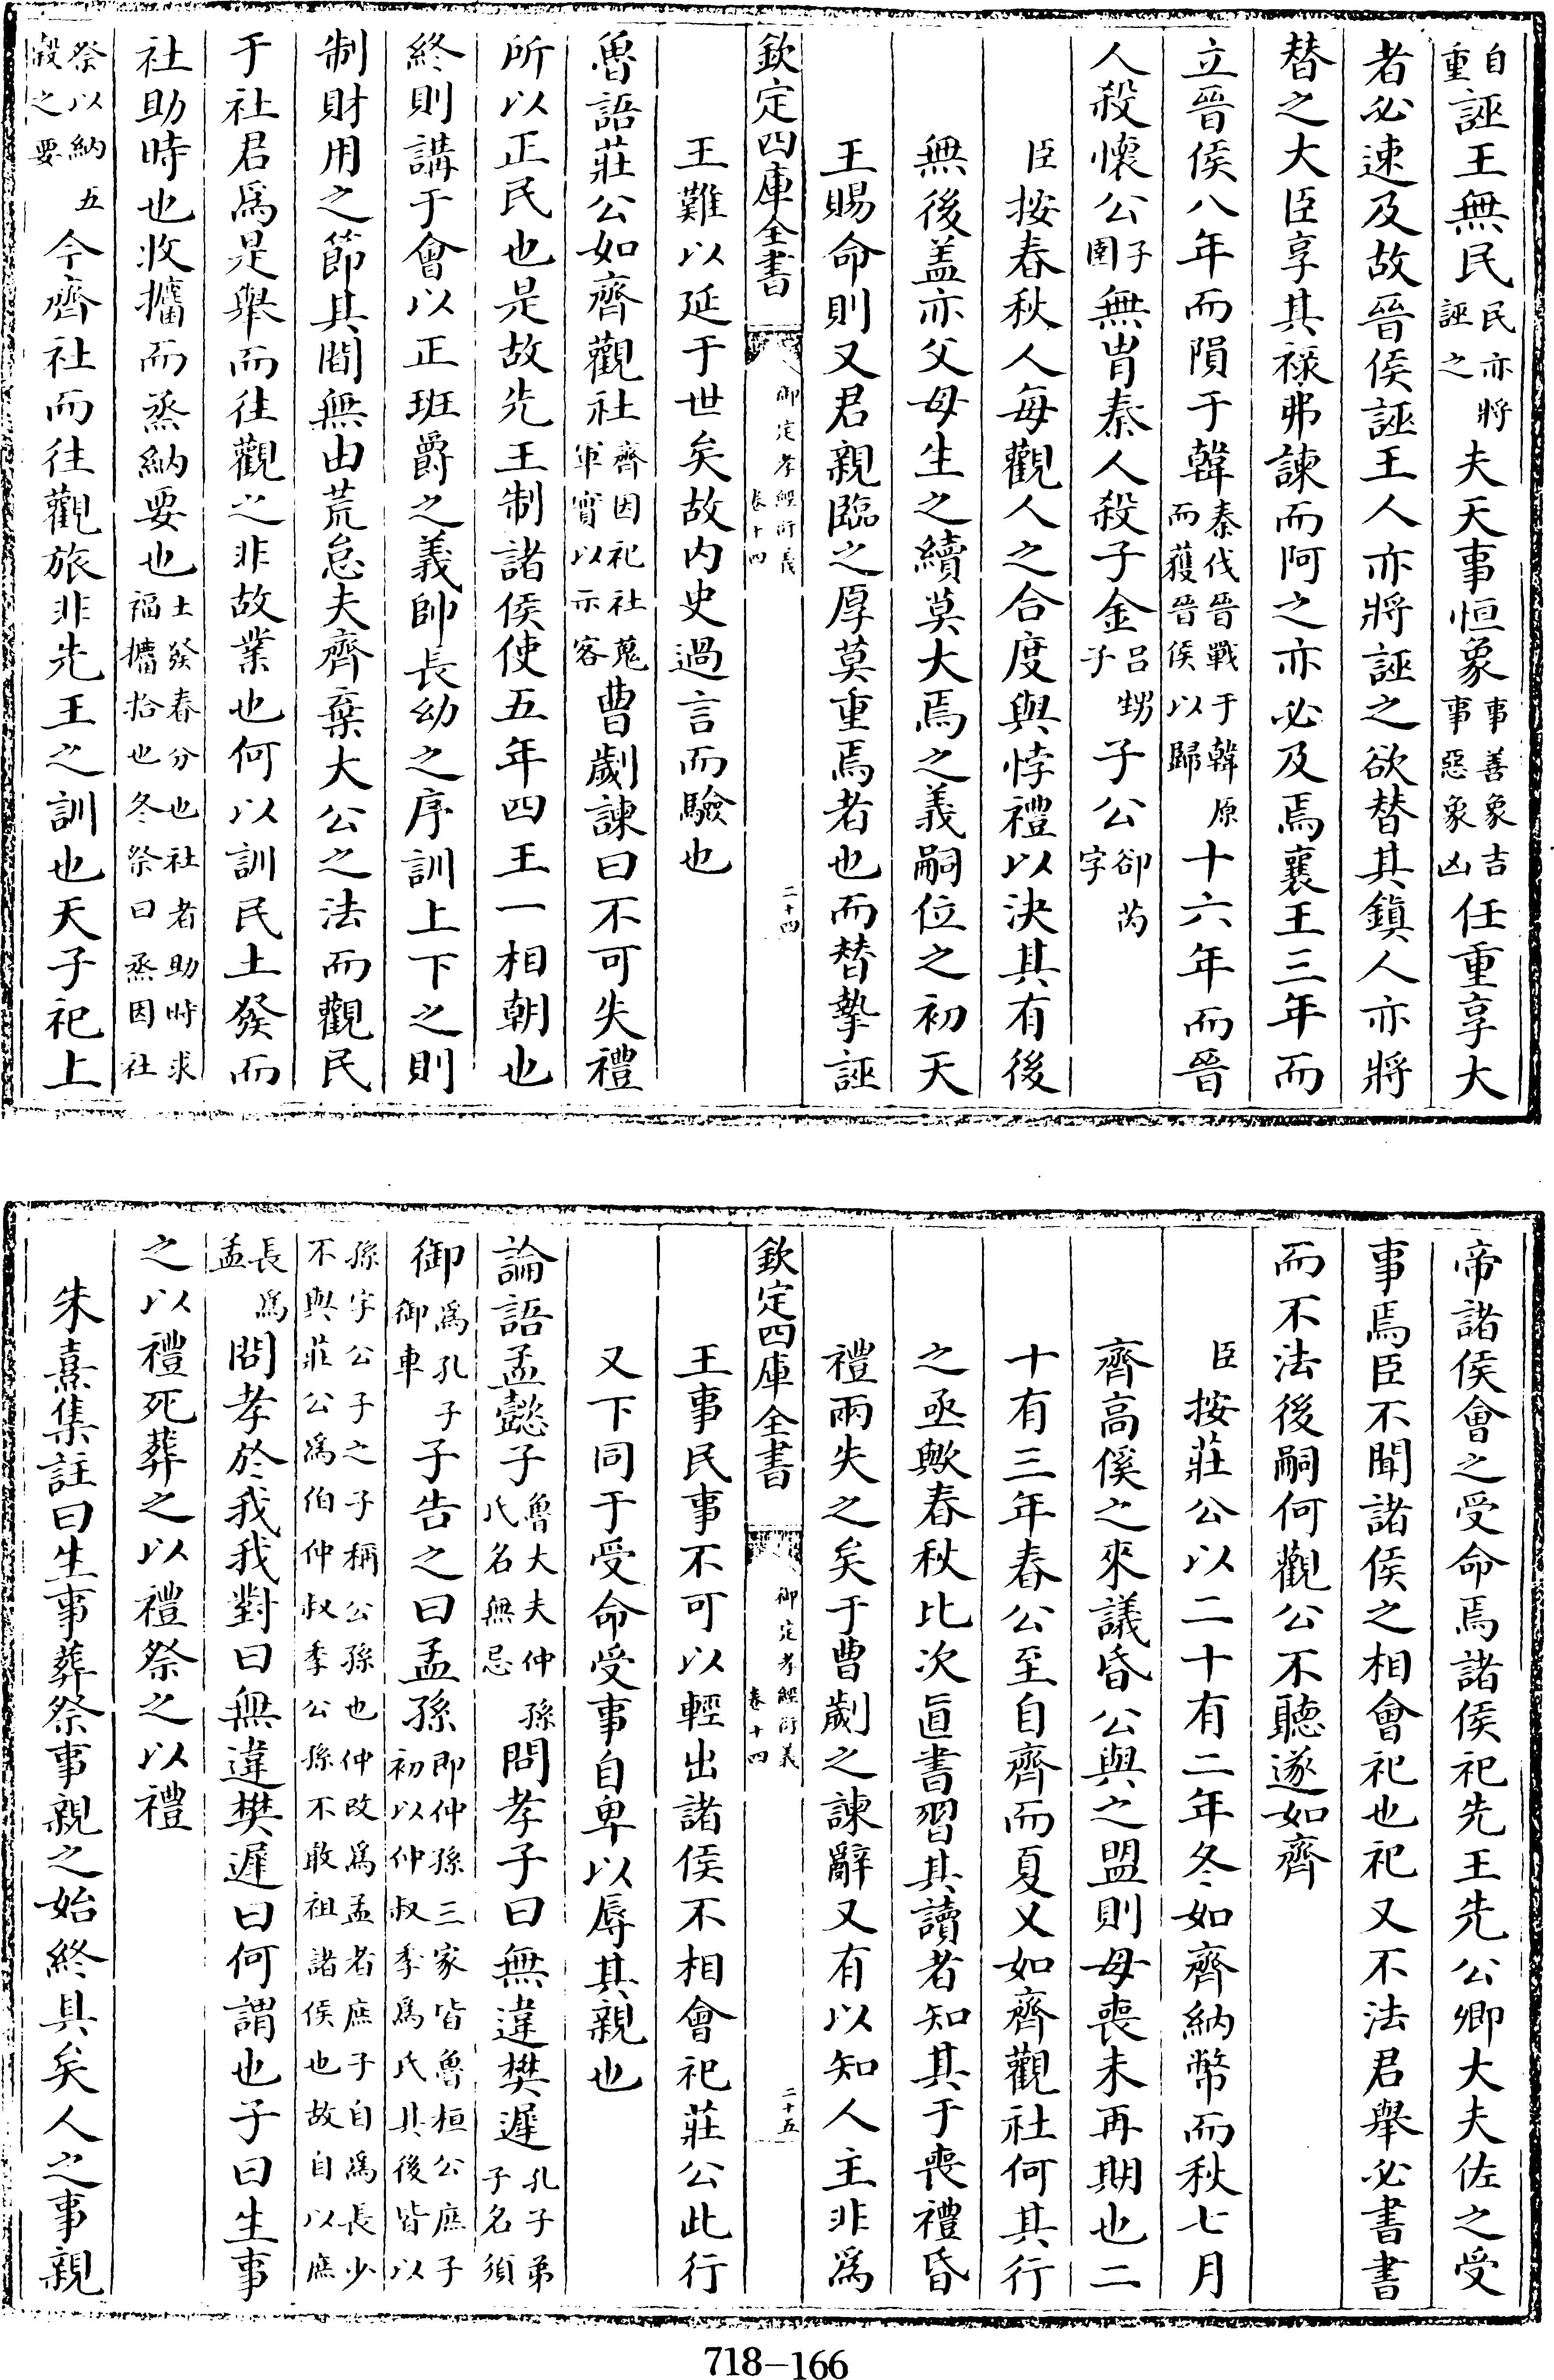 自重誣王無民民亦將誣之夫天事恒象事善象吉事惡象凶任重享大
者必速及故晉侯誣王人亦將誣之欲替其鎮人亦將
替之大臣享其祿弗諫而阿之亦必及焉襄王三年而
立晉侯八年而隕于韓秦伐晉戰于韓原而獲晉侯以歸十六年而晉
人殺懷公子圉無胄秦人殺子金吕甥子子公郤芮字
臣按春秋人每觀人之合度與悖禮以決其有後
無後盖亦父母生之續莫大焉之義嗣位之初天
王賜命則又君親臨之厚莫重焉者也而替摯誣
欽定四庫全書 御定孝經衍義卷十四 二十四
王難以延于世矣故内史過言而驗也
魯語莊公如齊觀社齊因祀社蒐軍實以示客曹劌諫曰不可失禮
所以正民也是故先王制諸侯使五年四王一相朝也
終則講于會以正班爵之義帥長幼之序訓上下之則
制財用之節其間無由荒怠夫齊棄大公之法而觀民
于社君爲是舉而往觀之非故業也何以訓民土發而
社助時也收攟而烝納要也土發春分也社者助時求福攟拾也冬祭曰烝因社
祭以納五穀之要今齊社而往觀旅非先王之訓也天子祀上
帝諸侯會之受命焉諸侯祀先王先公卿大夫佐之受
事焉臣不聞諸侯之相會祀也祀又不法君舉必書書
而不法後嗣何觀公不聽遂如齊
臣按莊公以二十有二年冬如齊納幣而秋七月
齊高傒之來議昏公與之盟則母喪未再期也二
十有三年春公至自齊而夏又如齊觀社何其行
之亟歟春秋比次直書習其讀者知其于喪禮昏
禮兩失之矣于曹劌之諫辭又有以知人主非爲
欽定四庫全書 御定孝經衍義卷十四 二十五
王事民事不可以輕出諸侯不相會祀莊公此行
又下同于受命受事自卑以辱其親也
論語孟懿子魯大夫仲孫氏名無忌問孝子曰無違樊遲孔子弟子名須
御爲孔子御車子告之曰孟孫即仲孫三家皆魯桓公庶子初以仲叔季爲氏其後皆以
孫字公子之子稱公孫也仲改爲孟者庶子自爲長少不與莊公爲伯仲叔季公孫不敢祖諸侯也故自以庶
長爲孟問孝於我我對曰無違樊遲曰何謂也子曰生事
之以禮死葬之以禮祭之以禮
朱熹集註曰生事葬祭事親之始終具矣人之事親
718-166